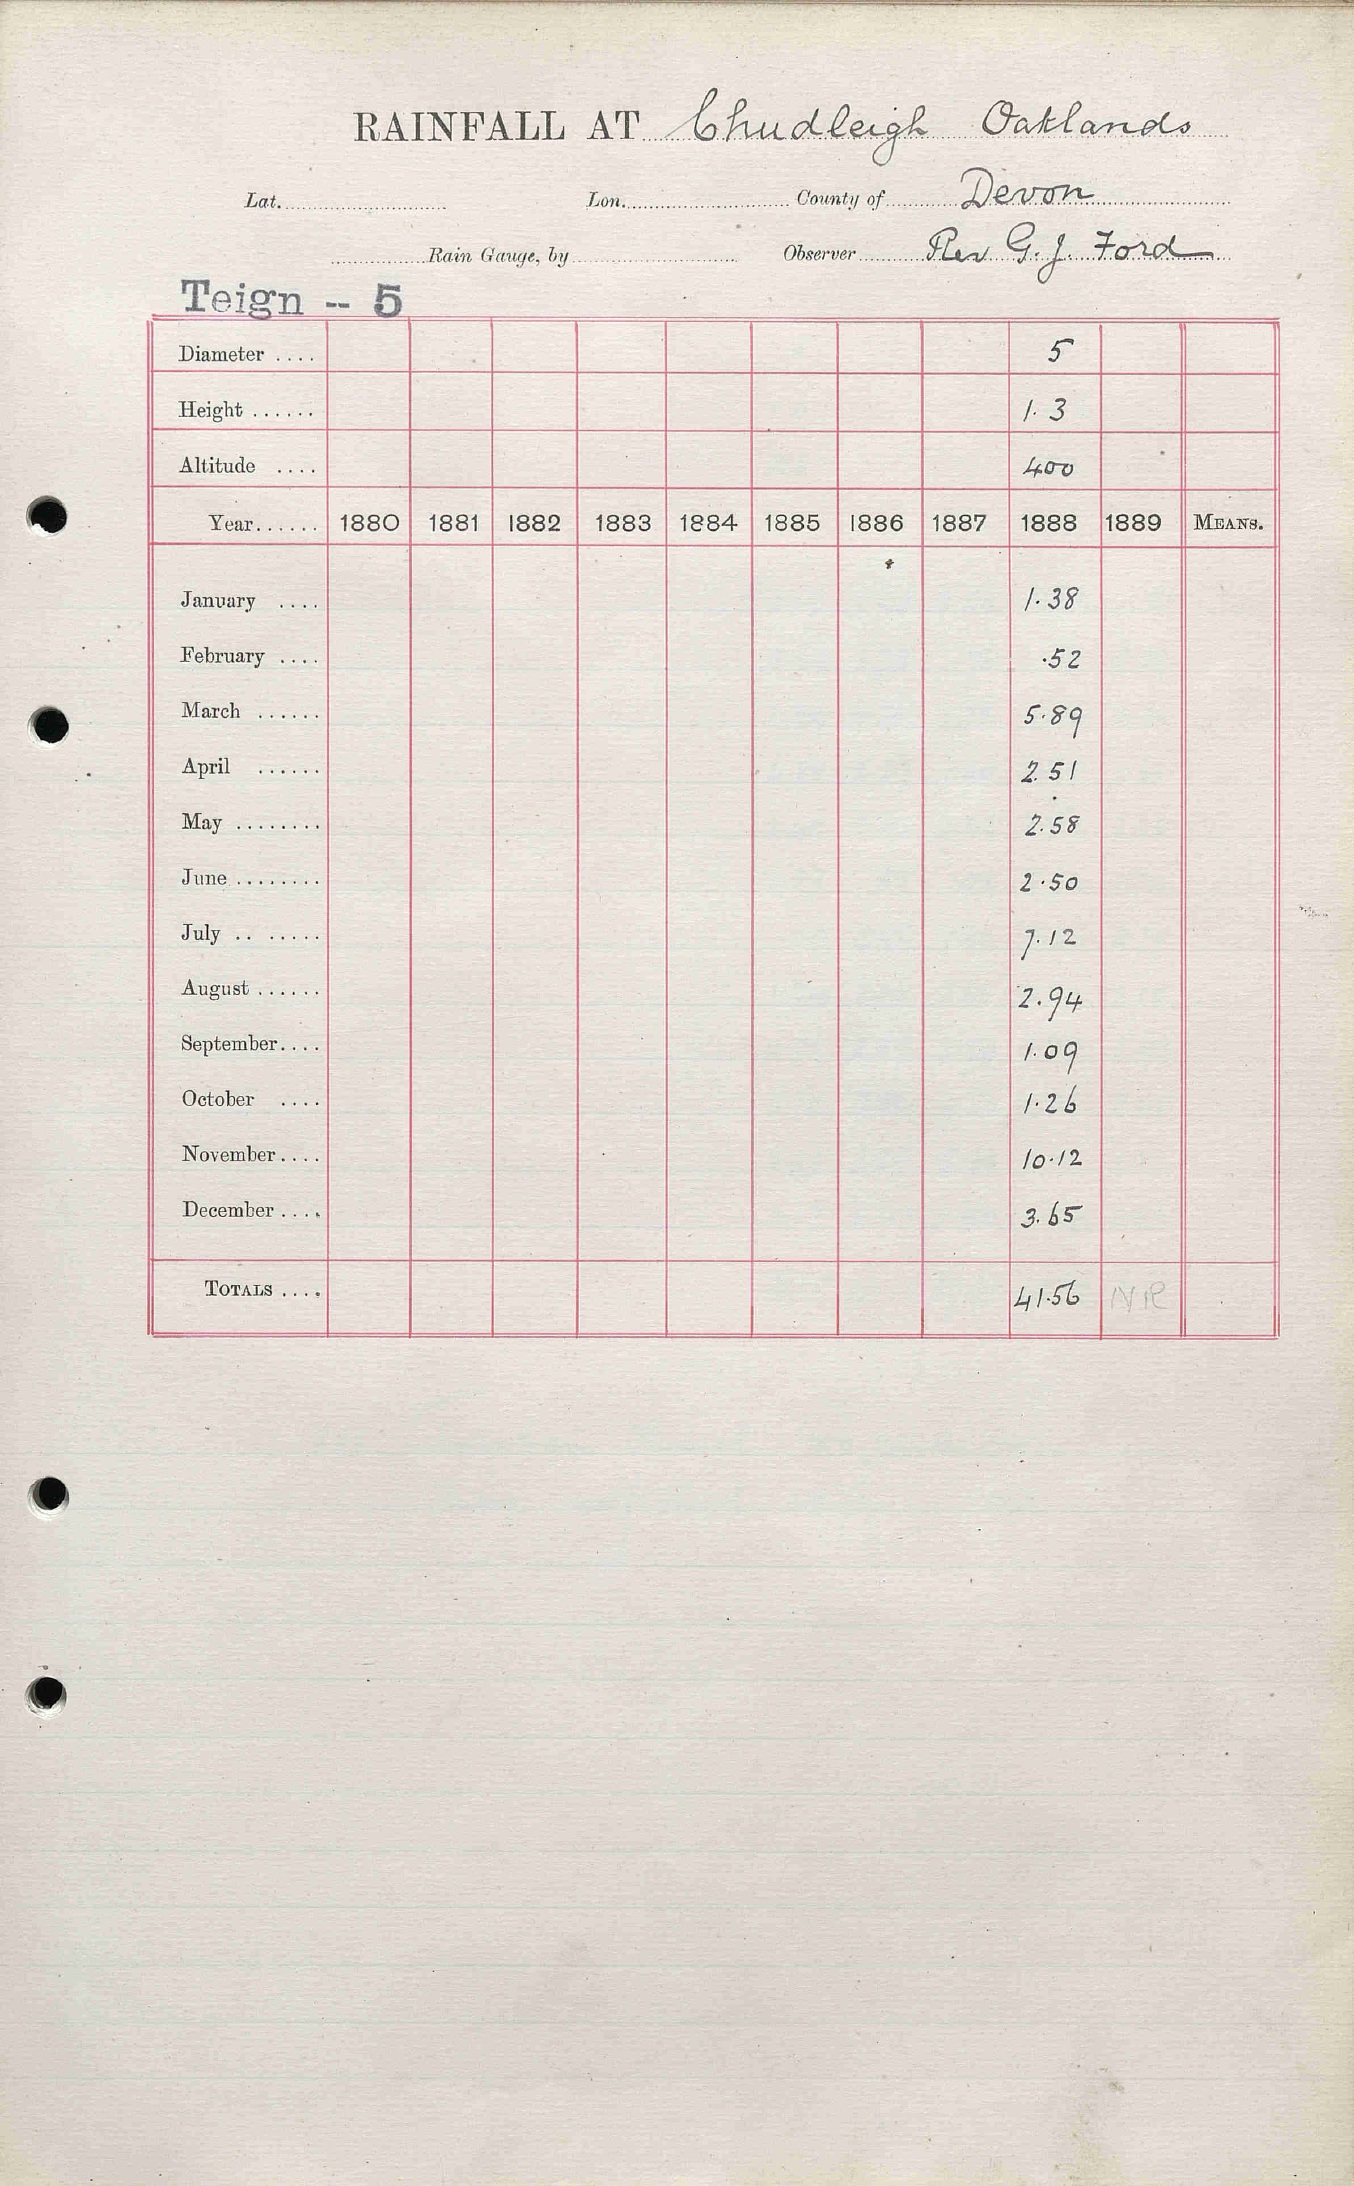 RAINFALL AT Chudleigh Oaklands
Lat. Lon. County of Devon
Rain Gauge, by Observer Rev G. J. Ford
Teign -- 5
Diameter .... 5
Height ...... 1. 3
Altitude .... 400
Year...... 1880 1881 1882 1883 1884 1885 1886 1887 1888 1889 MEANS.
January .... 1.38
February .... .52
March ...... 5.89
April ...... 2.51
May ........ 2.58
June ........ 2.50
July .. ..... 7.12
August ...... 2.94
September.... 1.09
October .... 1.26
November.... 10.12
December .... 3.65
TOTALS .... 41.56